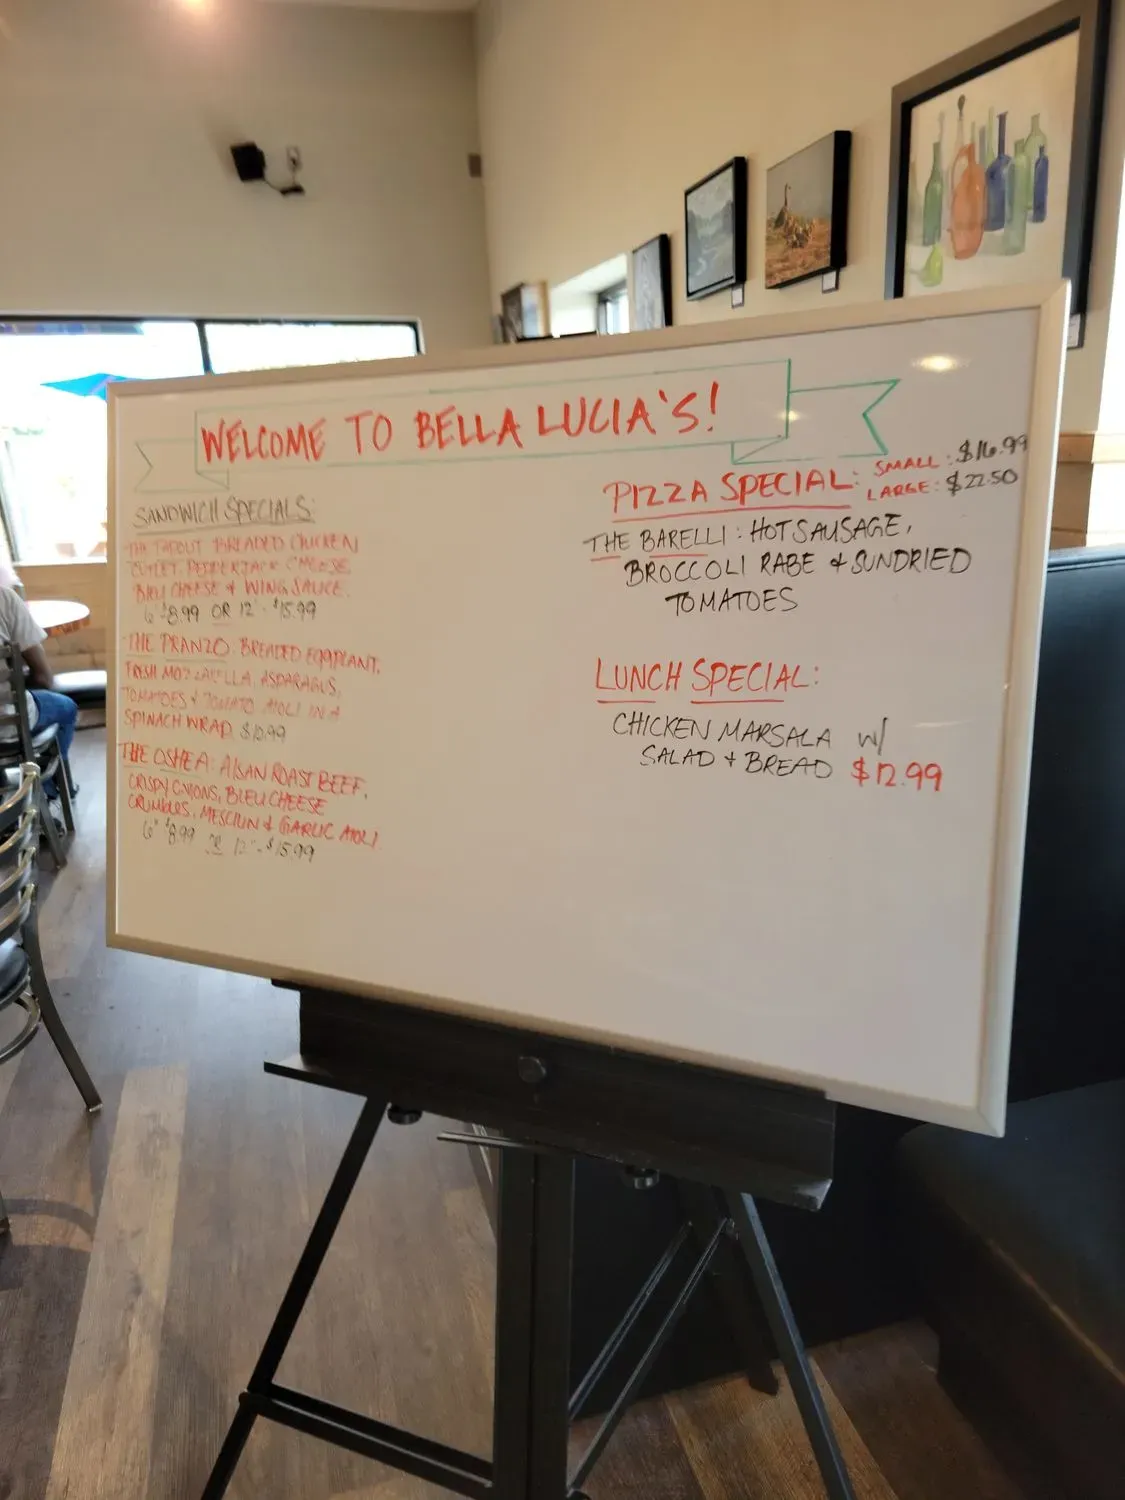 WELCOME TO BELLA LUCIA'S!
SANDWICH SPECIALS:
THE TAPOUT BREADED CHICKEN
CUTLET, PEPPERJACK CHEESE,
BLEU CHEESE & WING SAUCE.
6" $8.99 OR 12" - $15.99
THE PRANZO: BREADED EGGPLANT,
FRESH MOZZARELLA, ASPARAGUS,
TOMATOES & TOMATO AIOLI IN A
SPINACH WRAP $10.99
THE OSHEA: ASIAN ROAST BEEF,
CRISPY ONIONS, BLEU CHEESE
CRUMBLES, MESCLUN & GARLIC AIOLI.
6" $8.99 OR 12" - $15.99
PIZZA SPECIAL:
SMALL: $16.99
LARGE: $22.50
THE BARELLI: HOT SAUSAGE,
BROCCOLI RABE & SUNDRIED
TOMATOES
LUNCH SPECIAL:
CHICKEN MARSALA W/
SALAD & BREAD $12.99